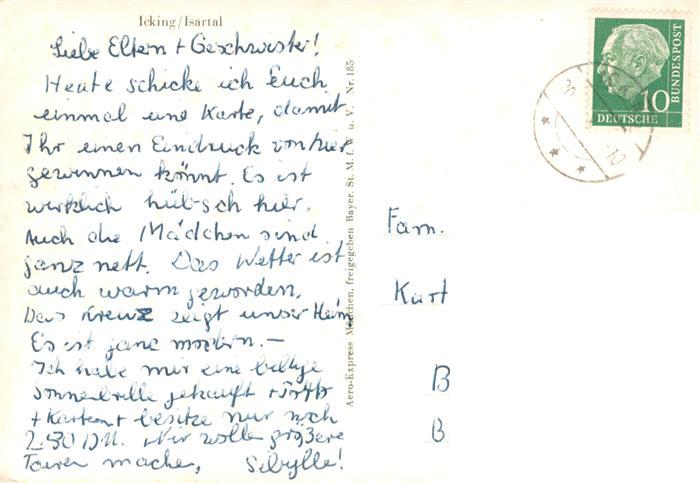 Icking/Isartal
Liebe Eltern + Geschwister!
Heute schicke ich Euch
einmal eine Karte, damit
Ihr einen Eindruck von hier
gewinnen könnt. Es ist
wirklich hübsch hier.
Auch die Mädchen sind
ganz nett. Das Wetter ist
auch warm geworden.
Das Kreuz zeigt unser Heim
Es ist ganz modern.—
Ich habe mir eine billige
Sonnenbrille gekauft
+ Karten + besitze nur noch
2.80 DM. Wir wollen größere
Touren mache, Sibylle!
Aero-Express München, freigegeben Bayer. St. M. f. W. u. V. Nr. 185
DEUTSCHE
BUNDESPOST
10
Fam.
Kurt
B
B